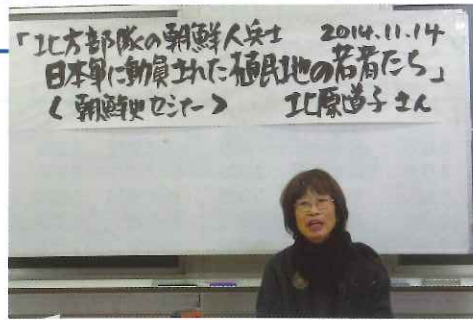 「北方部隊の朝鮮人兵士　2014.11.14
日本軍に動員された植民地の若者たち」
＜朝鮮史セミナー＞　北原道子さん